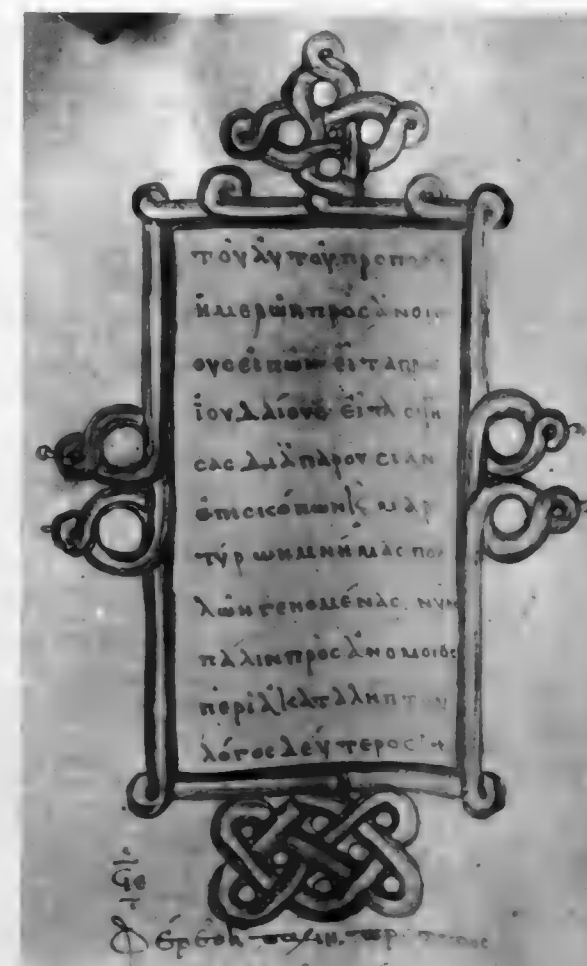 τοῦ αὐτοῦ πρὸ πο
ἡμερῶν πρὸς ἀνομ
ους εἰπὼν εἶτα πρὸς
ἰουδαίους εἶτα σιγή
σας διὰ παρουσίαν
ἐπισκόπων κ μαρ
τύρων μνήμας πολ
λῶν γενομένας νῦν
πάλιν πρὸς ἀνομοίους
περὶ ἀκαταλήπτου
λόγος δεύτερος
Φέρε δὴ πάλιν